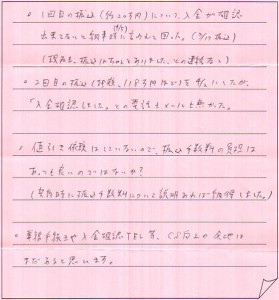 。1回目の振込(約20万円)について、入金が確認
出来てないと納車時に言われて困った。(5/17振込)
(後日、振込はちゃんとありました、との連絡あり)
。2回目の振込(残額、118万円ほど)を 6/2にしたが、
「入金確認しました。」との電話もメールも無かった。
。値引き依頼はしていないので、振込手数料の負担は
あっても良いのではないか?
(契約時に振込手数料について説明あれば納得しました。)
。事務手続きや入金確認TEL等、CS向上の余地は
まだあると思います。